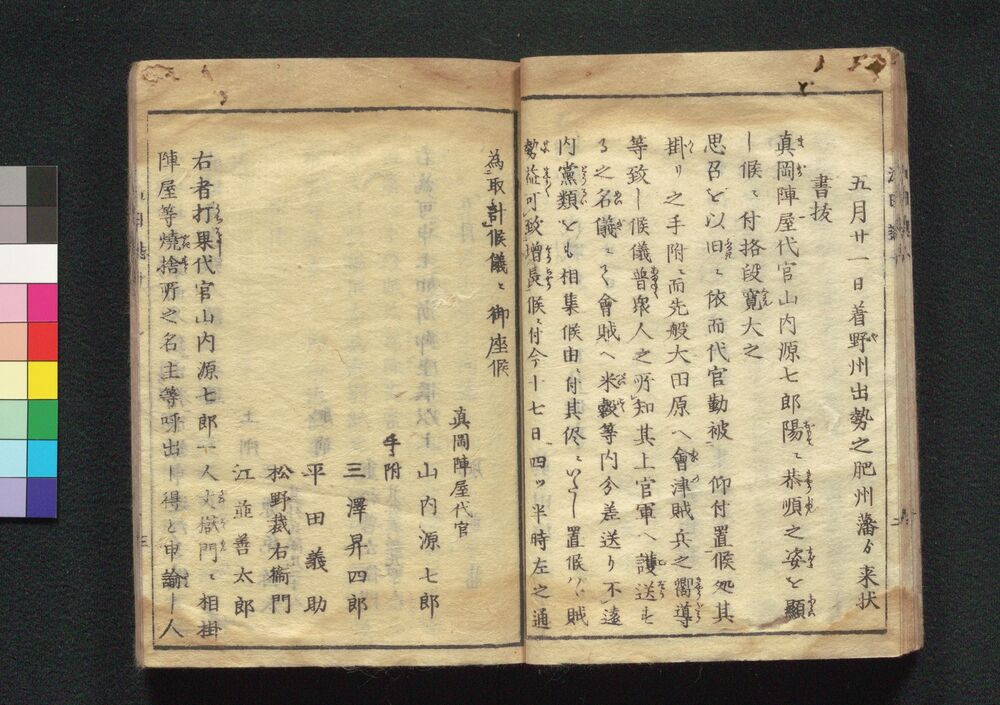 五月廿一日着野州出勢之肥州藩ゟ来状
書抜
真岡陣屋代官山内源七郎陽ニ恭順之姿を顕
し候ニ付格段寛大之
思召を以旧ニ依而代官勤被 仰付置候処其
掛リ之手附ニ而先般大田原へ會津賊兵之嚮導
等致し候儀普衆人之所知其上官軍へ護送す
る之名儀ニ而會賊へ米穀等内分差送り不遠
内黨類とも相集候由ニ付其侭ニいたし置候ハヽ賊
勢益可致増長候ニ付今十七日四ツ半時左之通
為取計候儀ニ御座候
真岡陣屋代官
山内源七郎
手附
三澤昇四郎
平田義助
松野裁右衞門
江莊善太郎
右者打果代官山内源七郎一人ハ獄門ニ相掛
陣屋等焼捨所之名主等呼出し得と申諭し人